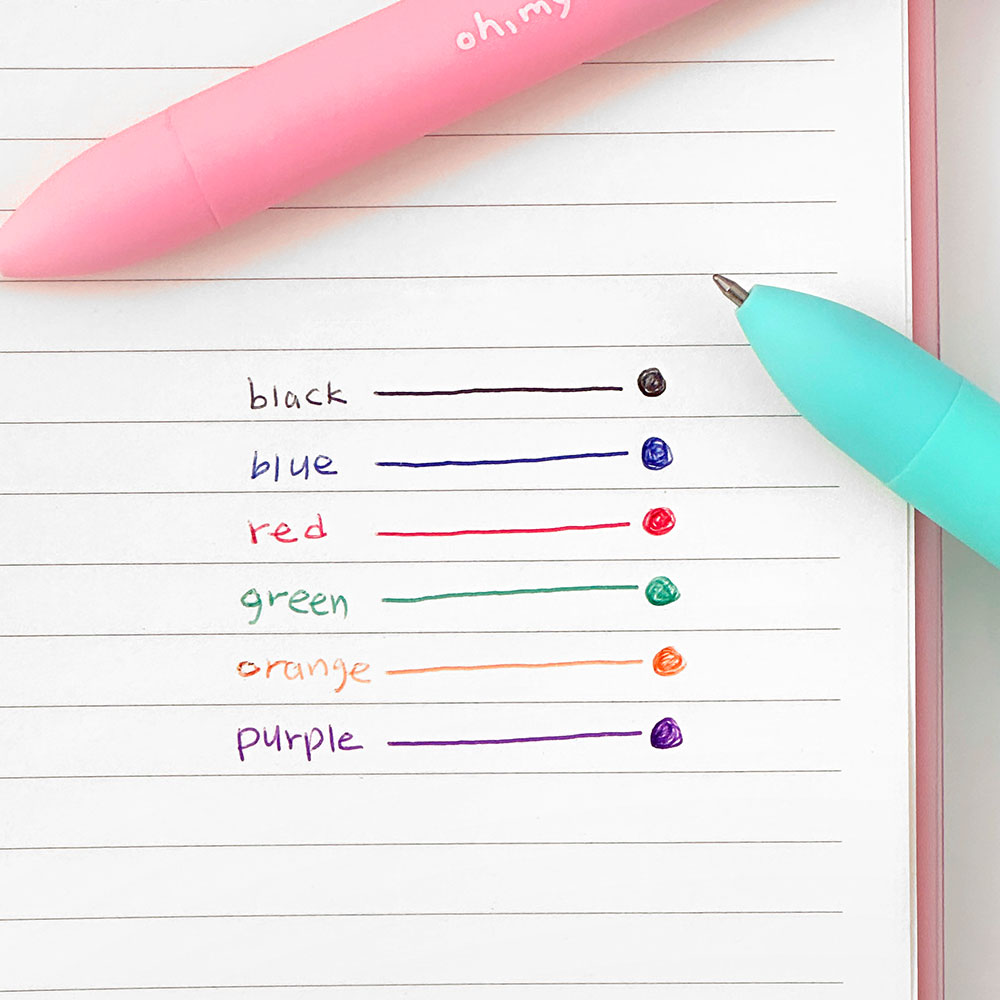 oh, my
black
blue
red
green
orange
purple